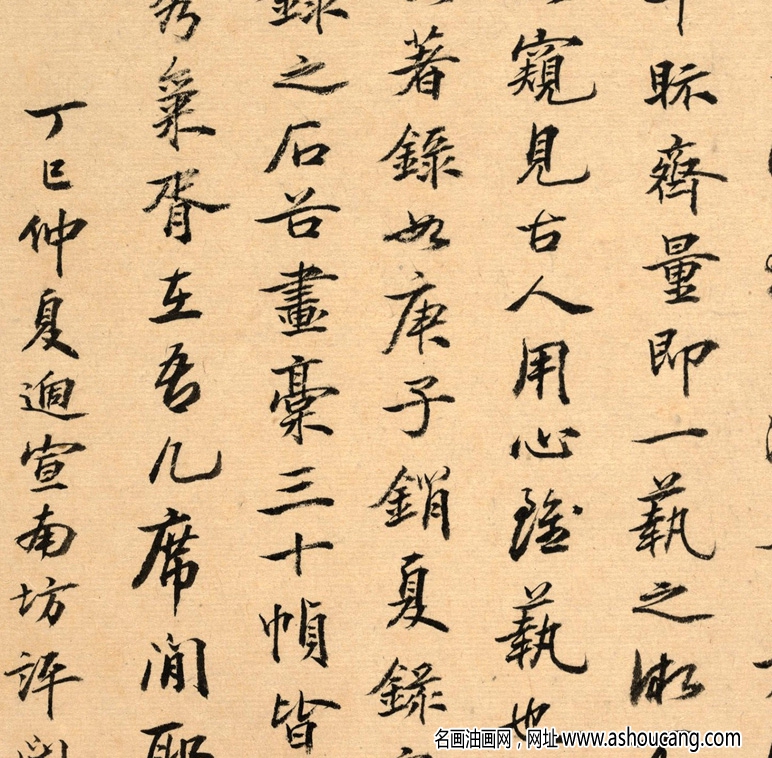 眎齊量即一藝之微
窺見古人用心雖藝也
著錄如庚子銷夏錄
錄之石谷畫稾三十幀皆
秀氣胥在吾几席間耶
丁巳仲夏迴宣南坊評
名画油画网，网址 www.ashoucang.com